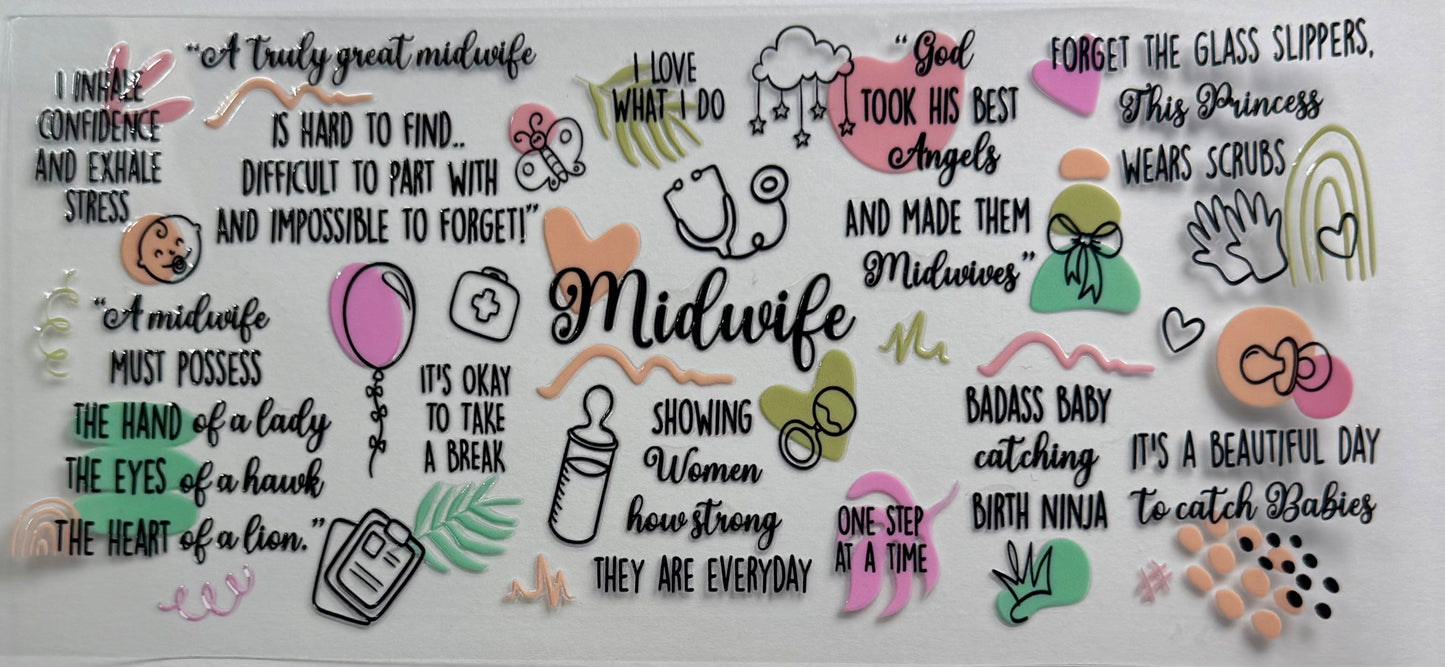 I INHALE
CONFIDENCE
AND EXHALE
STRESS
“A truly great midwife
IS HARD TO FIND..
DIFFICULT TO PART WITH
AND IMPOSSIBLE TO FORGET!”
I LOVE
WHAT I DO
“God
TOOK HIS BEST
Angels
AND MADE THEM
Midwives”
FORGET THE GLASS SLIPPERS,
This Princess
WEARS SCRUBS
“A midwife
MUST POSSESS
THE HAND of a lady
THE EYES of a hawk
THE HEART of a lion.”
IT'S OKAY
TO TAKE
A BREAK
Midwife
SHOWING
Women
how strong
THEY ARE EVERYDAY
ONE STEP
AT A TIME
BADASS BABY
catching
BIRTH NINJA
IT'S A BEAUTIFUL DAY
to catch Babies